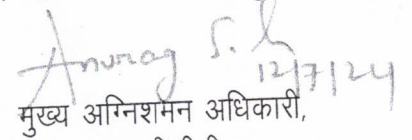 Anurag S.
12/7/24
मुख्य अग्निशमन अधिकारी,